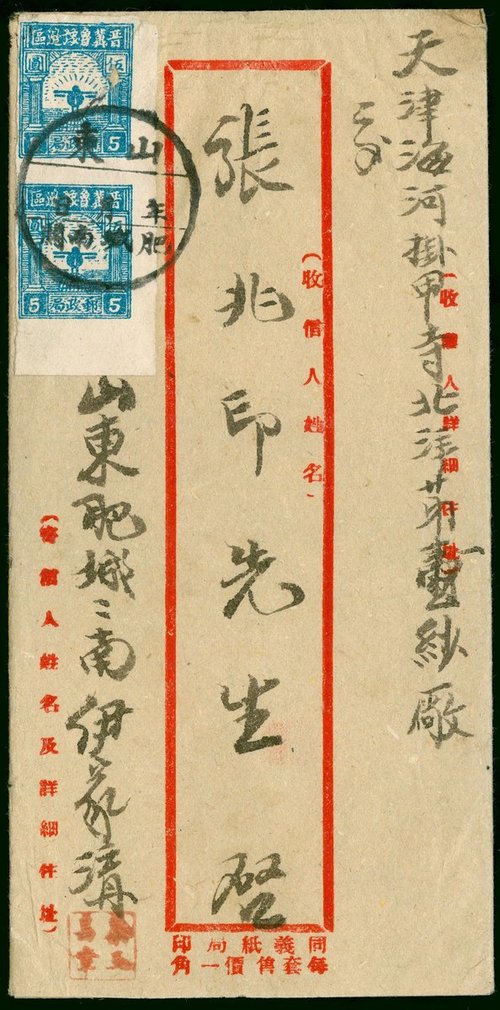 天津海河掛甲寺北洋第壹紗廠
(收信人詳細住址)
(收信人姓名)
張兆印先生啓
山東肥城城南伊家溝
(寄信人姓名及詳細住址)
晋冀魯豫邊區
伍圓
5 5
晋冀魯豫邊區
5 郵政局 5
山東
年月日
肥城南關
同義紙局印
每套售價一角